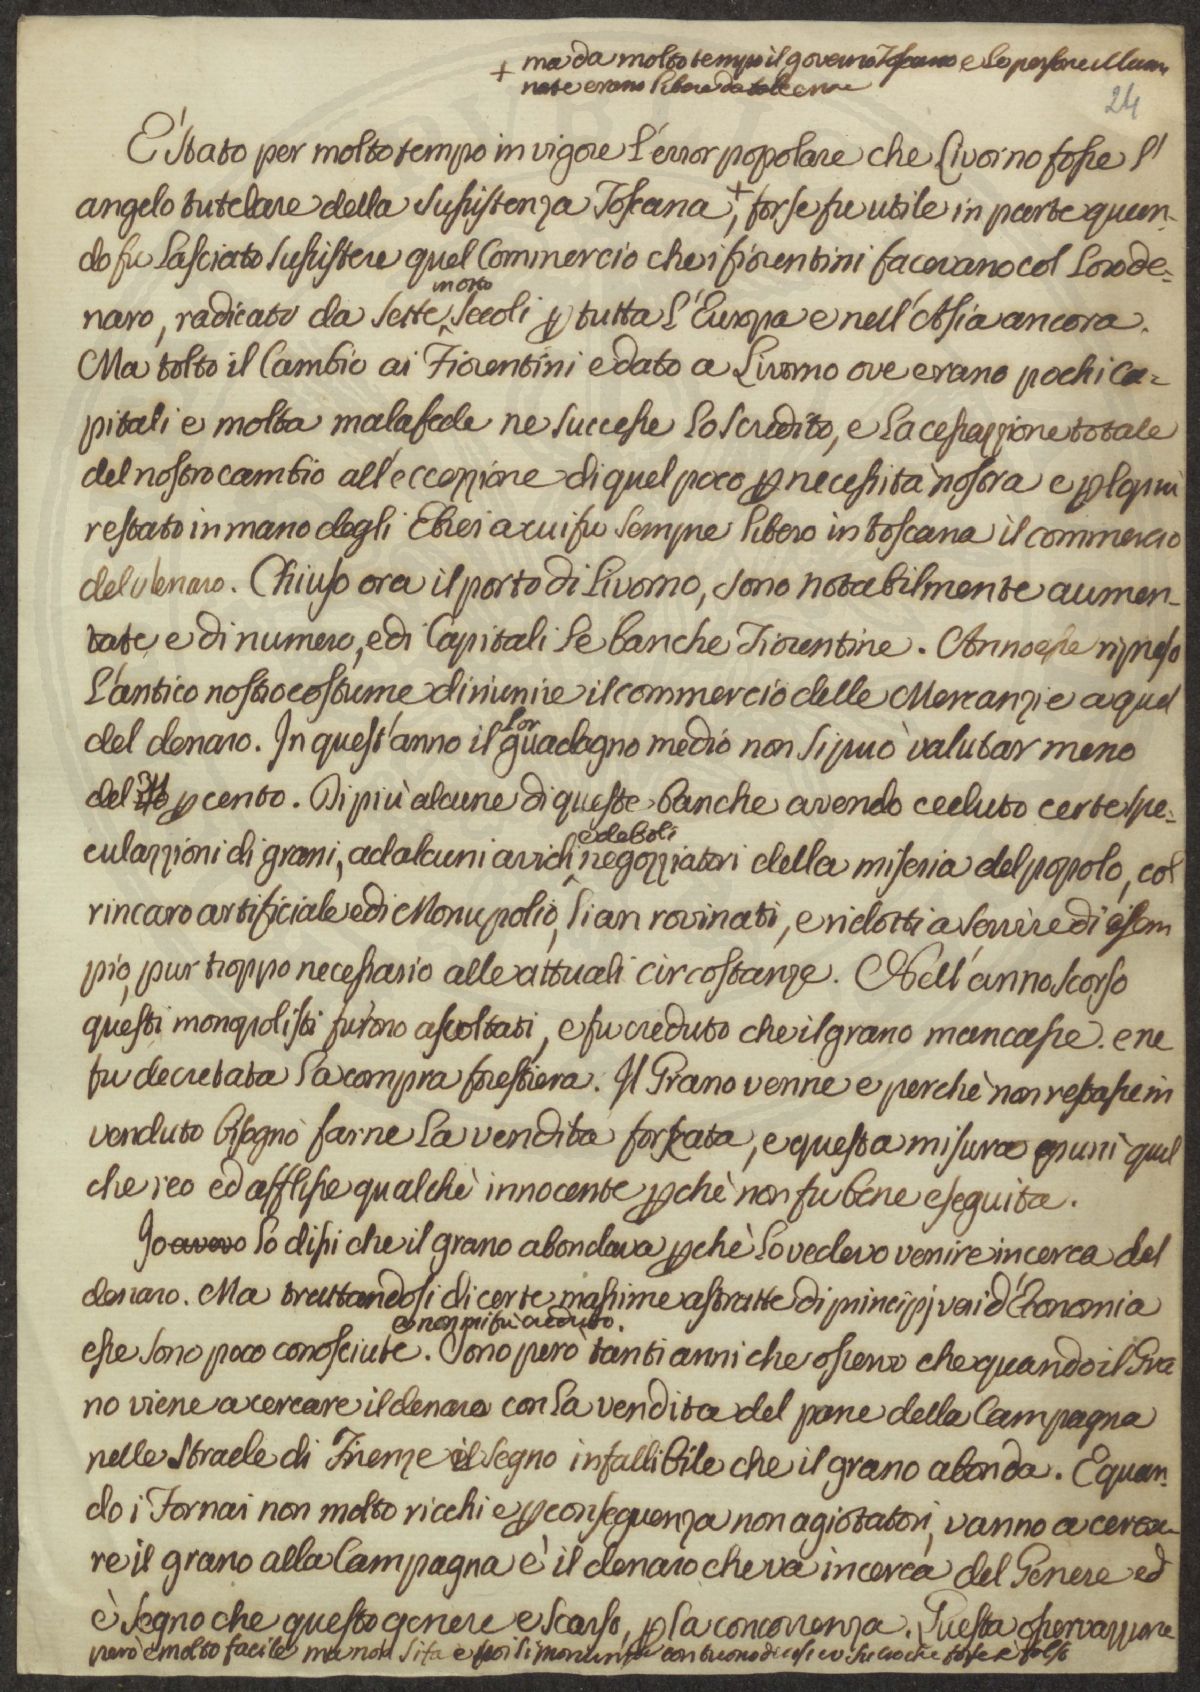 + ma da molto tempo il governo Toscano e le persone illumi
nate erano libere da tale errore
24
È stato per molto tempo in vigore l'error popolare che Livorno fosse l'
angelo tutelare della sussistenza Toscana +, forse fu utile in parte quan-
do fu lasciato sussistere quel Commercio che i fiorentini facevano col loro de-
naro, radicato da sette in otto Secoli p tutta l'Europa e nell'Asia ancora.
Ma tolto il Cambio ai Fiorentini e dato a Livorno ove erano pochi ca-
pitali e molta malafede ne successe lo scredito, e la cessazzione totale
del nostro cambio all'eccezzione di quel poco p necessità nostra e p
restato in mano degli Ebrei a cui fu sempre libero in toscana il commercio
del denaro. Chiuso ora il porto di Livorno, sono notabilmente aumen-
tate e di numero, e di Capitali le banche Fiorentine. Anno esse ripreso
l'antico nostro costume di riunire il commercio delle Mercanzie a quel
del denaro. In quest'anno il lor guadagno medio non si può valutar meno
del p cento. Di più alcune di queste banche avendo ceduto certe spe-
culazzioni di grani, ad alcuni avidi e deboli negozziatori della miseria del popolo, col
rincaro artificiale e di Monopolio, si an rovinati, e ridotti a servire di esem
pio, pur troppo necessario alle attuali circostanze. Nell'anno scorso
questi monopolisti furono ascoltati, e fu creduto che il grano mancasse. e ne
fu decretata la compra forestiera. Il Grano venne e perchè non restasse in
venduto bisognò farne la vendita forzata, e questa misura punì qual
che reo ed afflisse qualche innocente pchè non fu bene eseguita.
Io avevo lo dissi che il grano abondava pchè lo vedevo venire in cerca del
denaro. Ma trattandosi di certe massime astratte di principj veri d'Economia
esse sono poco conosciute. e non mi fu creduto. Sono però tanti anni che osservo che quando il Gra
no viene a cercare il denaro con la vendita del pane della Campagna
nelle Strade di Firenze è segno infallibile che il grano abonda. E quan-
do i Fornai non molto ricchi e p conseguenza non agiotatori, vanno a cerca-
re il grano alla Campagna è il denaro che va in cerca del Genere ed
è segno che questo genere e scarso, p la concorrenza. Questa osservazzione
però è molto facile ma non si fa e poi si con tuono che forse è falso